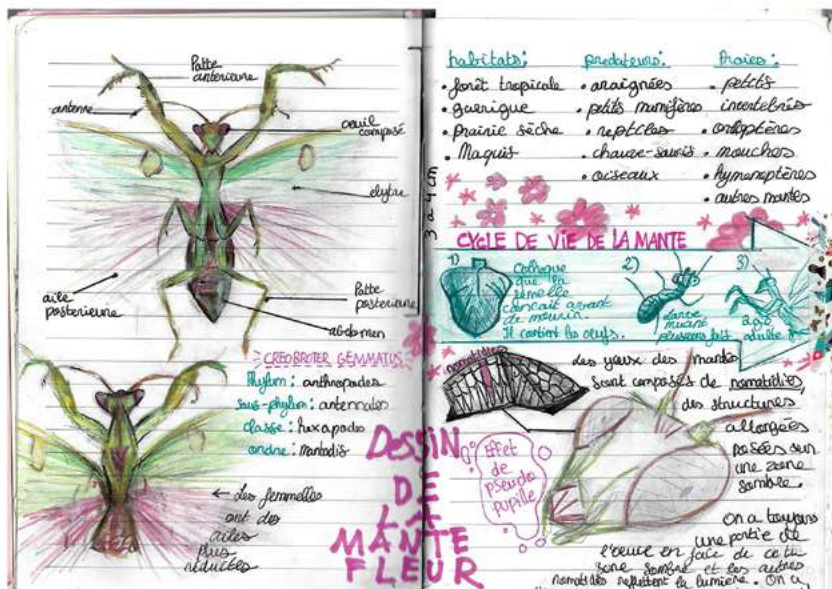 Patte
antérieure
antenne
oeuil
composé
elytre
aile
posterieure
Patte
posterieure
abdomen
CREOBROTER GEMMATUS
Phylum: anthropodes
sous-phylum: antennates
classe: hexapodes
ordre: mantodis
← Les femmelles
ont des
ailes
plus
réductes
DESSIN
DE
LA
MANTE
FLEUR
3 à 4 cm
habitats:
• forêt tropicale
• guerigue
• prairie sèche
• Maquis
predateurs:
• araignées
• petits mamifères
• reptiles
• chauve-souris
• oiseaux
Proies:
• petits
invertebrés
• ortoptères
• mouches
• hymenoptères
• autres mantes
CYCLE DE VIE DE LA MANTE
1)
que la
femelle
avant
de mourir.
Il contient les oeufs.
2)
larve
muant
plusieurs fois
3)
adulte
nomatidies
Les yeux des mantes
sont composés de nomatidies,
des structures
allongées
posées sur
une zone
sombre.
Effet
de
pseudo
pupille
On a toujours
une partie de
l'oeuil en face de cette
zone sombre et les autres
nomatidies reflettent la lumière. On a